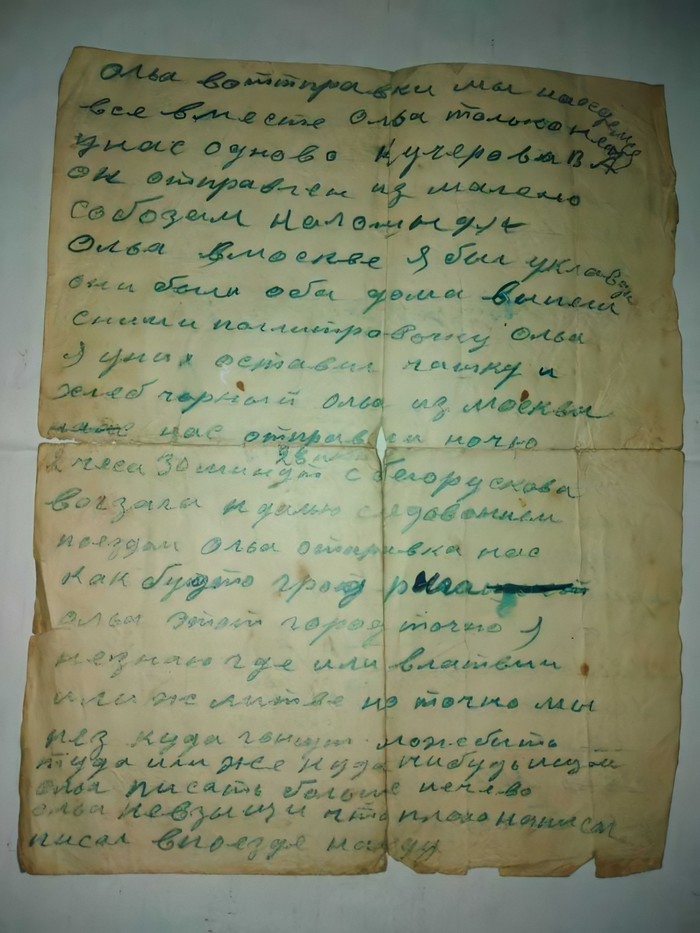 Ольа воттправки мы находемсе
все вместе Ольа только нет
унас одново Кучерова В А
он отправлен из малено
Ольа в москве я был уклавзи
они были оба дома выпели
сними поллитровочку Ольа
я уних оставил чашку и
хлеб чорный Ольа из Москвы
нас отправили ночю
2 часа 30 минут 28 с белорускова
вокзала идалью следованием
поездом Ольа отправка нас
как будто град рига
Ольа этот город точно я
незнаю где или влатвии
или ж литве но точно мы
куда гонют можебыть
туда или же куданибудь
Ольа писать больше нечево
Ольа невзыщи что плохо написал
писал впоезде находу